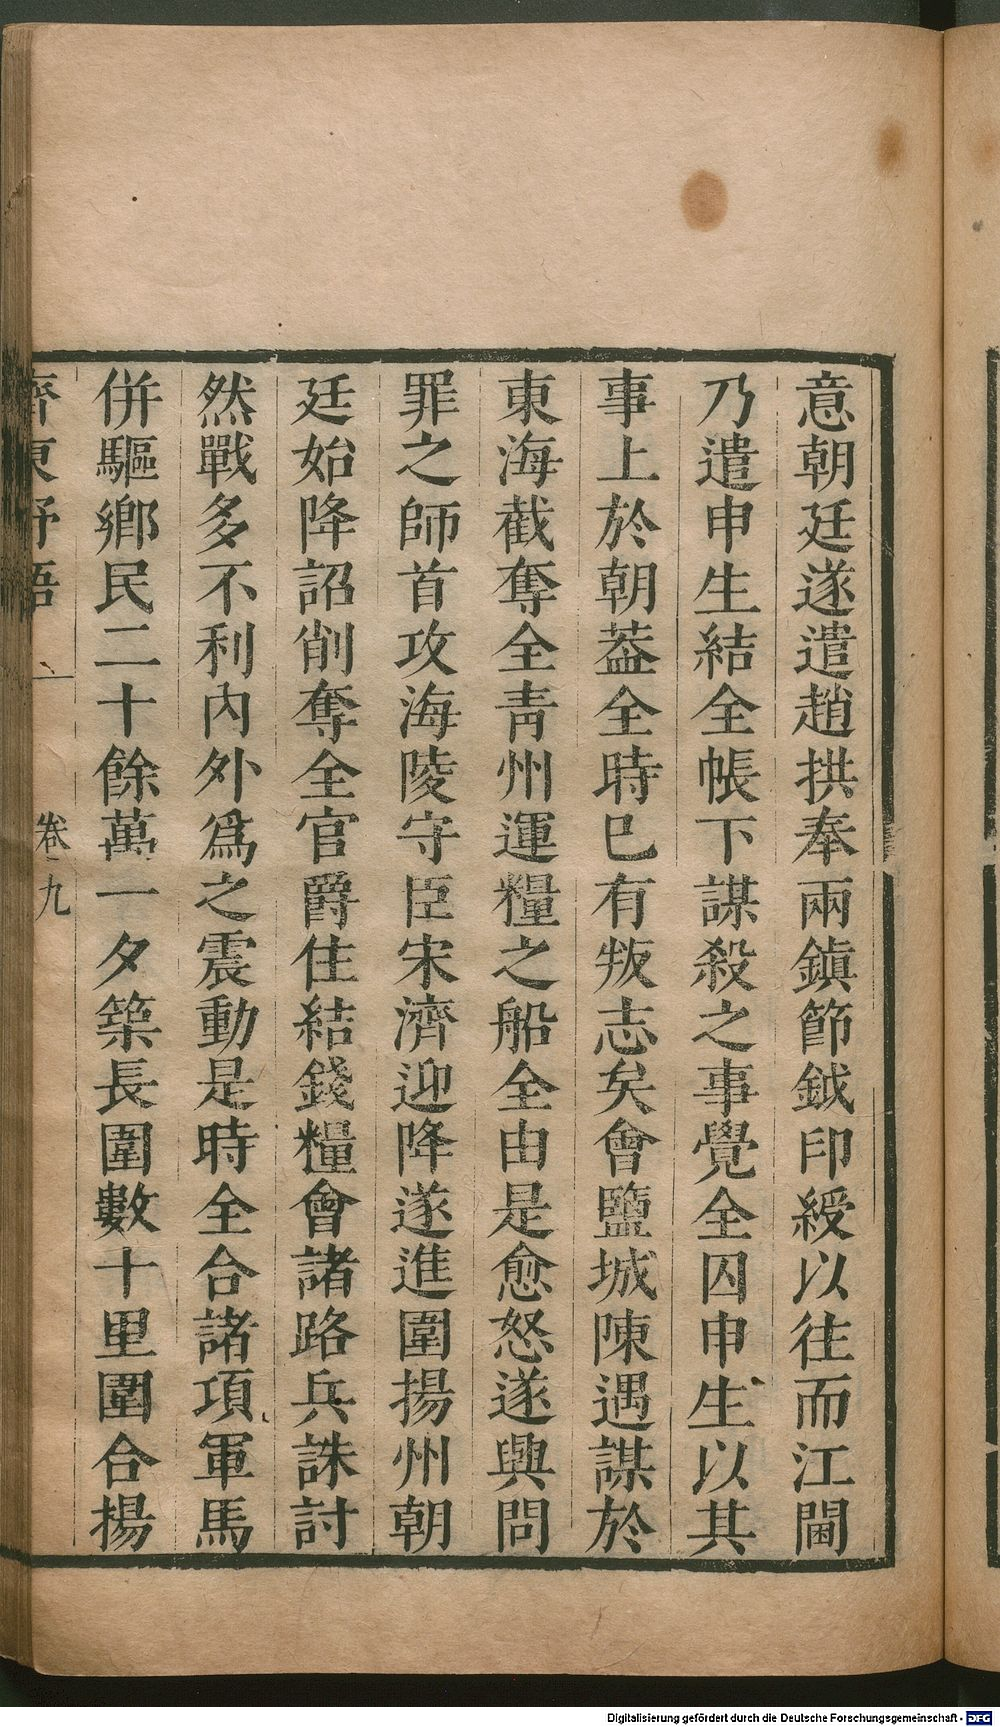 意朝廷遂遣趙拱奉兩鎭節鉞印綬以往而江閫
乃遣申生結全帳下謀殺之事覺全囚申生以其
事上於朝葢全時已有叛志矣會鹽城陳遇謀於
東海截奪全靑州運糧之船全由是愈怒遂興問
罪之師首攻海陵守臣宋濟迎降遂進圍揚州朝
廷始降詔削奪全官爵住結錢糧會諸路兵誅討
然戰多不利內外爲之震動是時全合諸項軍馬
併驅鄉民二十餘萬一夕築長圍數十里圍合揚
齊東野語 卷九
Digitalisierung gefördert durch die Deutsche Forschungsgemeinschaft - DFG